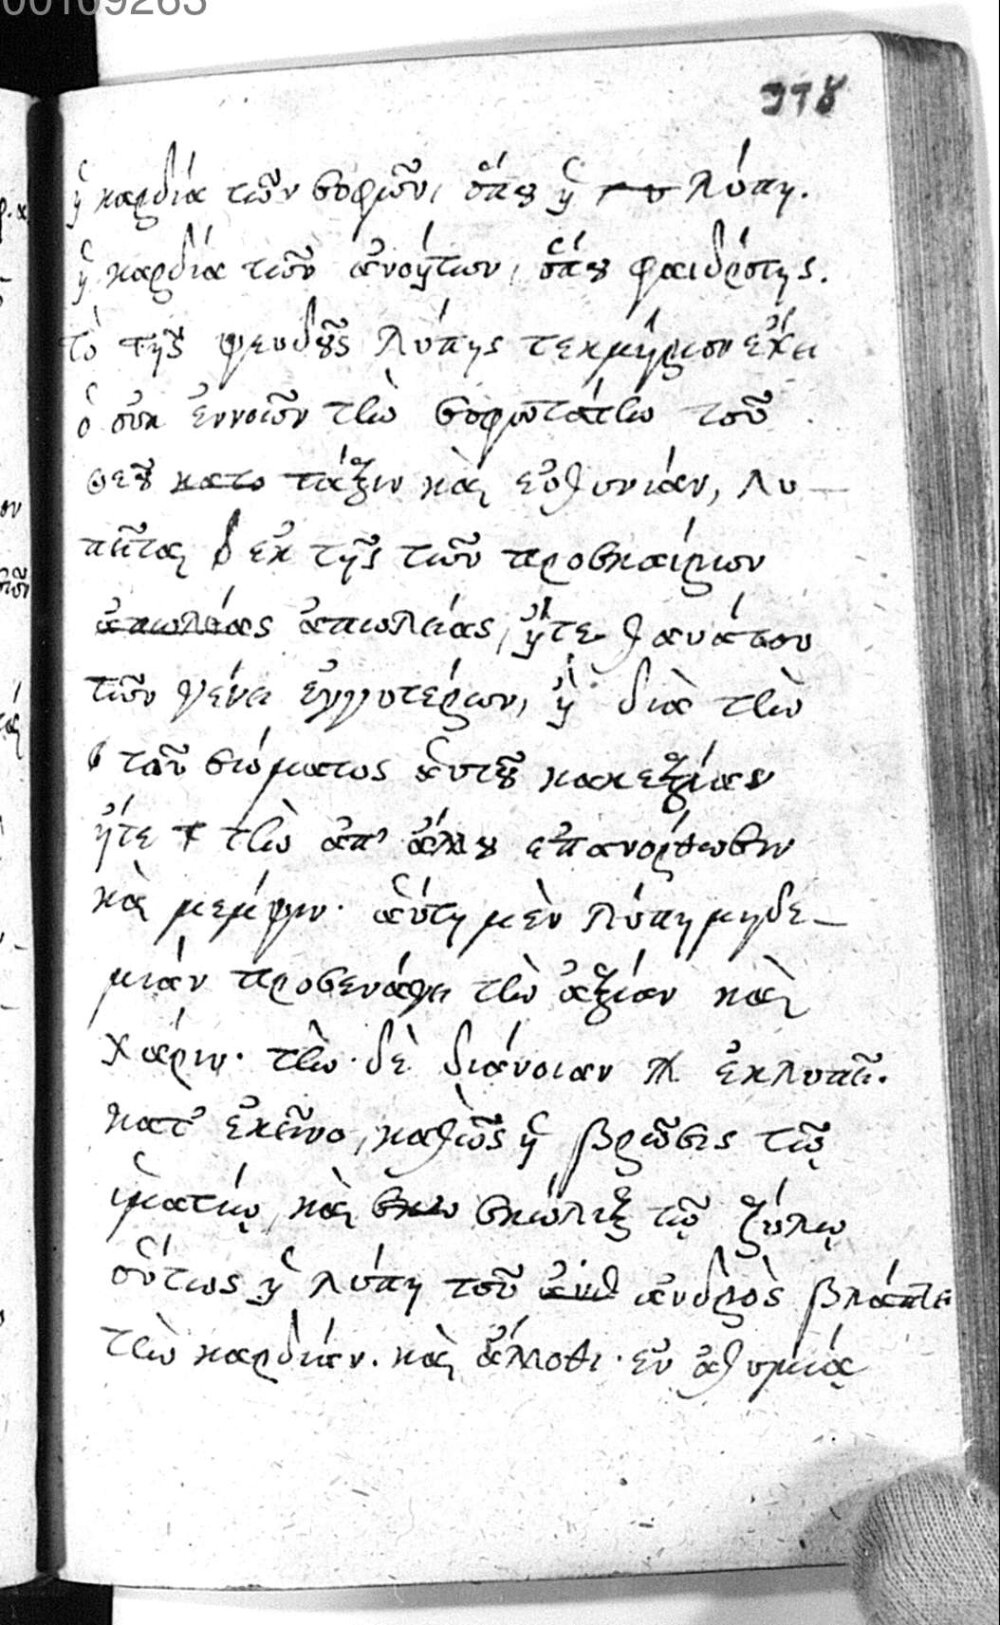 00109263
318
ἡ καρδία τῶν σοφῶν, ὅπου ἡ λύπη.
ἡ καρδία τῶν ἀνοήτων, ὅπου φαιδρότης.
τὸ τῆς ψευδοῦς λύπης τεκμήριον ἔχει
ὁ οὐκ ἐννοῶν τὴν σοφωτάτην τοῦ
θεοῦ κατα τάξιν καὶ εὐθυνίαν, λυ-
πεῖται ἐκ τῆς τῶν προσκαίρων
ἀπωλείας ἀπωλείας, ἤτε θανάτου
τῶν γένει ἐγγυτέρων, ἢ διὰ τὴν
τοῦ σώματος αὐτοῦ καχεξίαν
ἤτε τὴν ἀπ' ἄλλου ἐπανόρθωσιν
καὶ μέμψιν. αὕτη μὲν λύπη μηδε-
μίαν προσενάγει τὴν ἀξίαν καὶ
χάριν. τὴν δὲ διάνοιαν ἐκλυπεῖ.
κατ' ἐκεῖνο, καθὼς ἡ βρῶσις τῷ
ἱματίῳ, καὶ σκω σκώληξ τῷ ξύλῳ
οὕτως ἡ λύπη τοῦ ἀνδρὸς βλάπτει
τὴν καρδίαν. καὶ ἄλλοθι. ἐν ἀθυμίᾳ